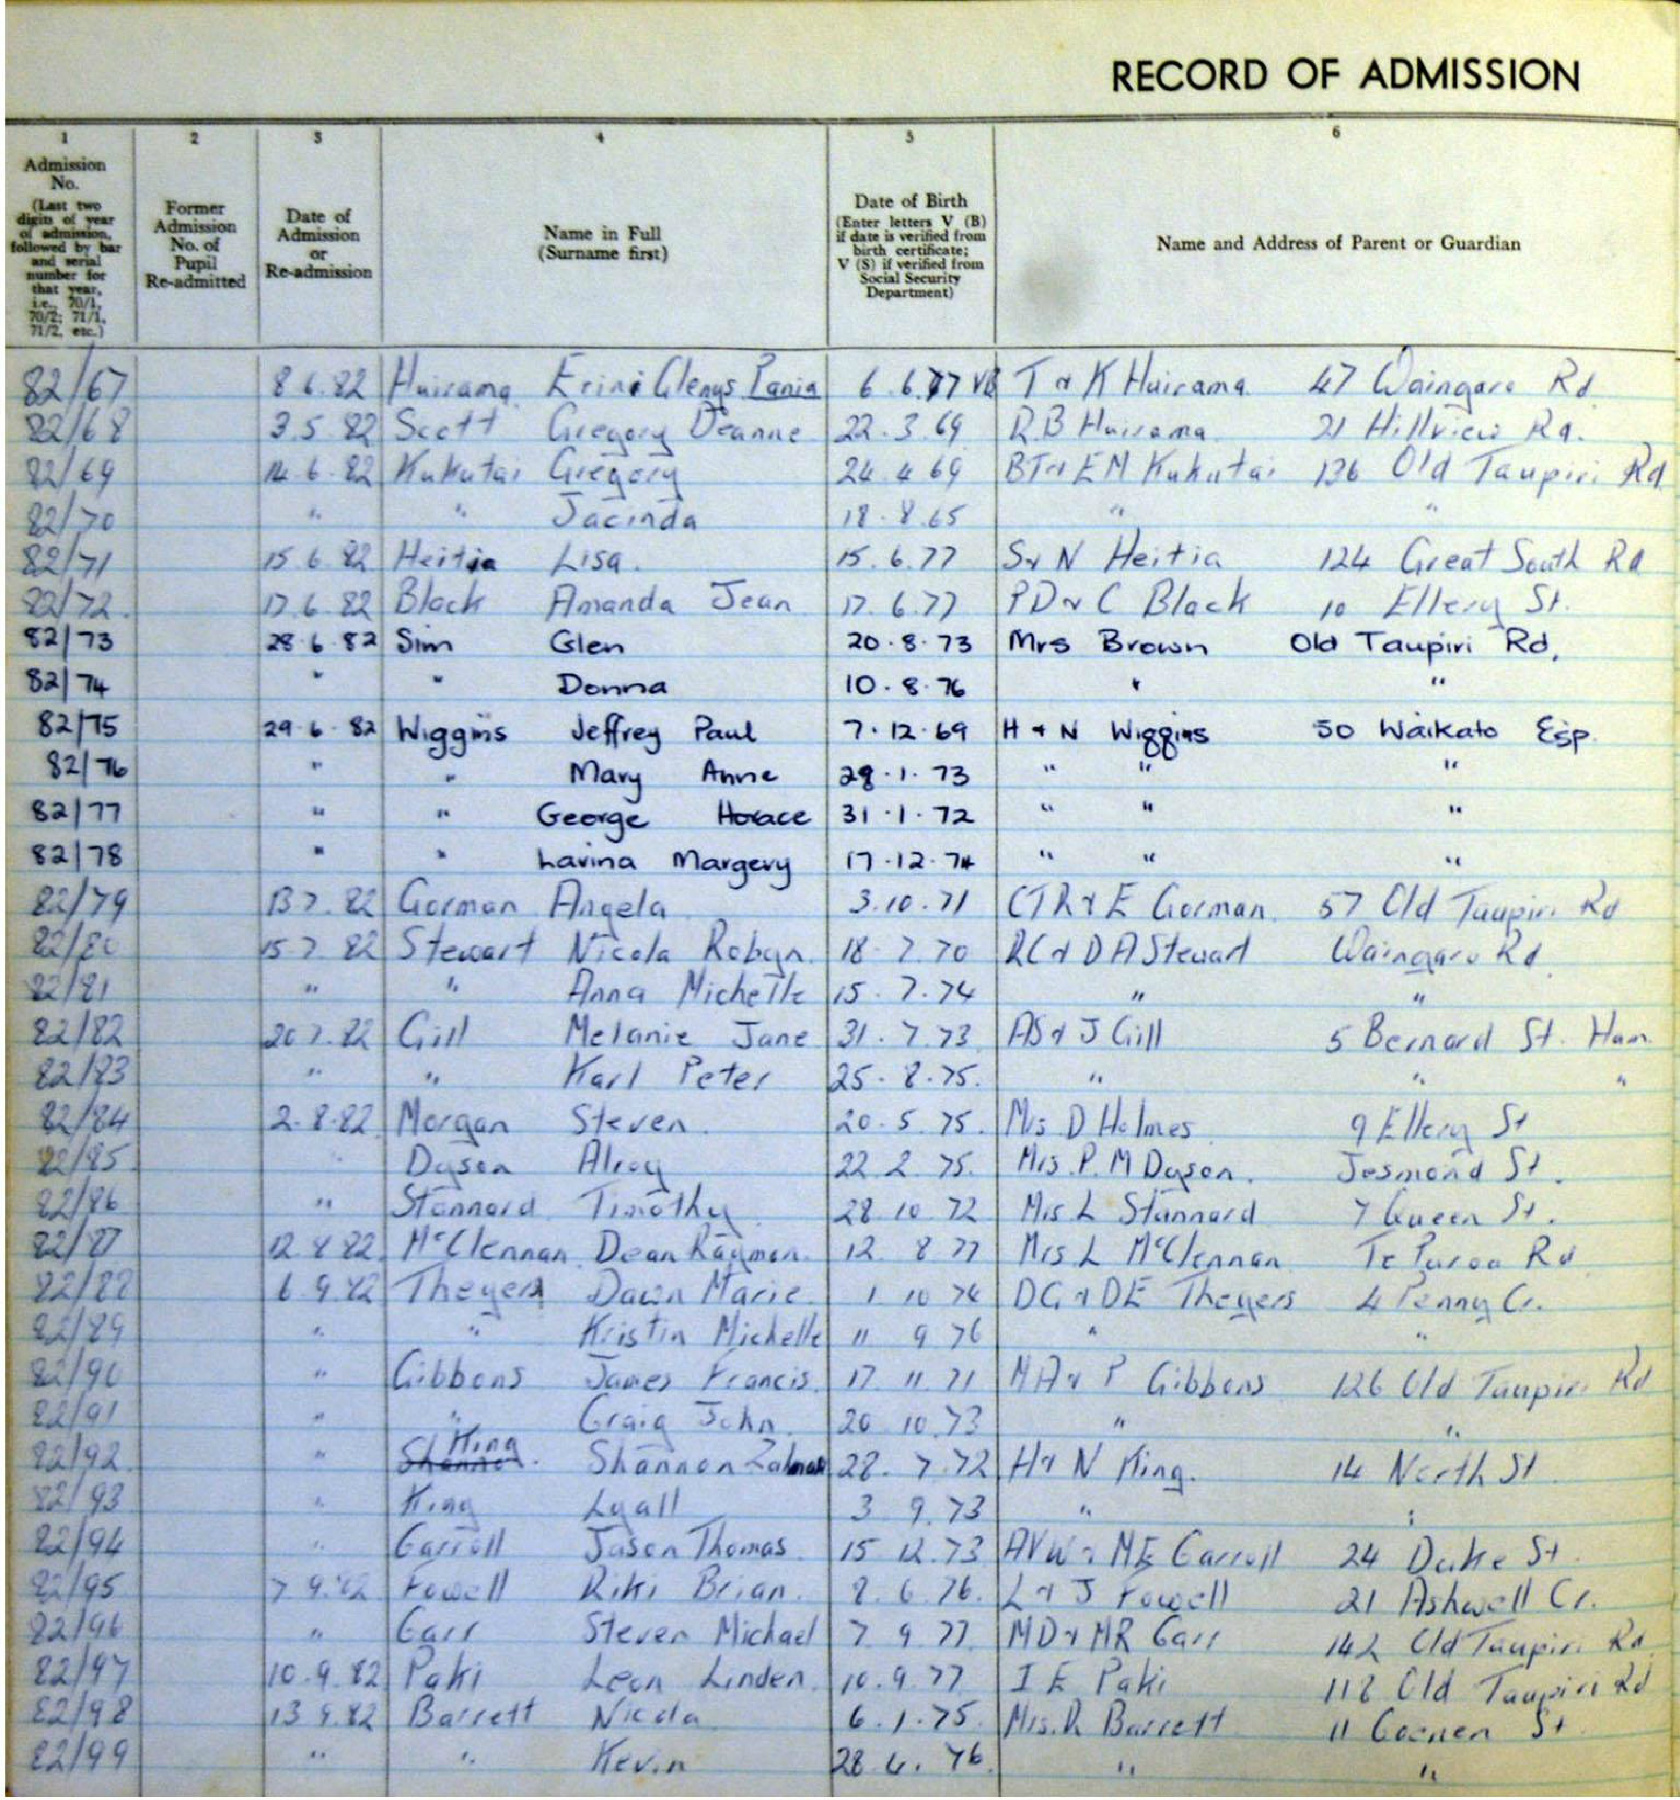 RECORD OF ADMISSION
1 2 3 4 5 6
Admission No. (Last two digits of year of admission, followed by bar and serial number for that year, i.e., 70/1, 70/2; 71/1, 71/2, etc.)
Former Admission No. of Pupil Re-admitted
Date of Admission or Re-admission
Name in Full (Surname first)
Date of Birth (Enter letters V (B) if date is verified from birth certificate; V (S) if verified from Social Security Department)
Name and Address of Parent or Guardian
82/67 8 6.82 Huirama Erini Glenys Pania 6.6.77 VB T & K Huirama 47 Waingaro Rd
82/68 3.5.82 Scott Gregory Deanne 22.3.69 R.B Huirama 21 Hillview Rd.
82/69 14.6.82 Kukutai Gregory 24 4 69 BT & EM Kukutai 136 Old Taupiri Rd
82/70 " " Jacinda 18.8.65 " "
82/71 15.6.82 Heitia Lisa. 15.6.77 S & N Heitia 124 Great South Rd
82/72. 17.6.82 Black Amanda Jean 17.6.77 PD & C Black 10 Ellery St.
82/73 28.6.82 Sim Glen 20.8.73 Mrs Brown Old Taupiri Rd,
82/74 " " Donna 10.8.76 " "
82/75 29.6.82 Wiggins Jeffrey Paul 7.12.69 H & N Wiggins 50 Waikato Esp.
82/76 " " Mary Anne 28.1.73 " " "
82/77 " " George Horace 31.1.72 " " "
82/78 " " Lavina Margery 17.12.74 " " "
82/79 13 7.82 Gorman Angela 3.10.71 CTR & E Gorman 57 Old Taupiri Rd
82/80 15 7 82 Stewart Nicola Robyn. 18.7.70 RC & DA Stewart Waingaro Rd
82/81 " " Anna Michelle 15.7.74 " "
82/82 20 7.82 Gill Melanie Jane 31.7.73 AS & J Gill 5 Bernard St. Ham
82/83 " " Karl Peter 25.8.75. " " "
82/84 2.8.82. Morgan Steven. 20.5.75. Mrs D Holmes 9 Ellery St
82/85 " Dyson Alroy 22 2 75. Mrs. P. M Dyson. Jesmond St.
82/86 " Stannard Timothy 28 10 72 Mrs L Stannard 7 Queen St.
82/87 12.8.82. McClennan Dean Raymon. 12 8 77 Mrs L McClennan Te Puroa Rd
82/88 6.9.82 Theyers Dawn Marie. 1 10 74 DG & DE Theyers 4 Penny Cr.
82/89 " " Kristin Michelle 11 9 76 " "
82/90 " Gibbons James Francis. 17 11 71 MA & P Gibbons 126 Old Taupiri Rd
82/91 " " Craig John. 20 10.73 " "
82/92. " King Shannon Zalman 28.7.72 H & N King. 14 North St
82/93 " King Lyall 3 9.73 " "
82/94 " Carroll Jason Thomas. 15 12.73 AVW & ME Carroll 24 Duke St.
82/95 7 9.82 Fowell Riki Brian. 8.6.76. L & J Fowell 21 Ashwell Cr.
82/96 " Carr Steven Michael 7 9 77. MD & MR Carr 142 Old Taupiri Rd
82/97 10.9.82 Paki Leon Linden. 10.9.77 I E Paki 118 Old Taupiri Rd
82/98 13 9.82 Barrett Nicola 6.1.75. Mrs. R Barrett 11 St.
82/99 " " Kevin 28 6. 76. " "